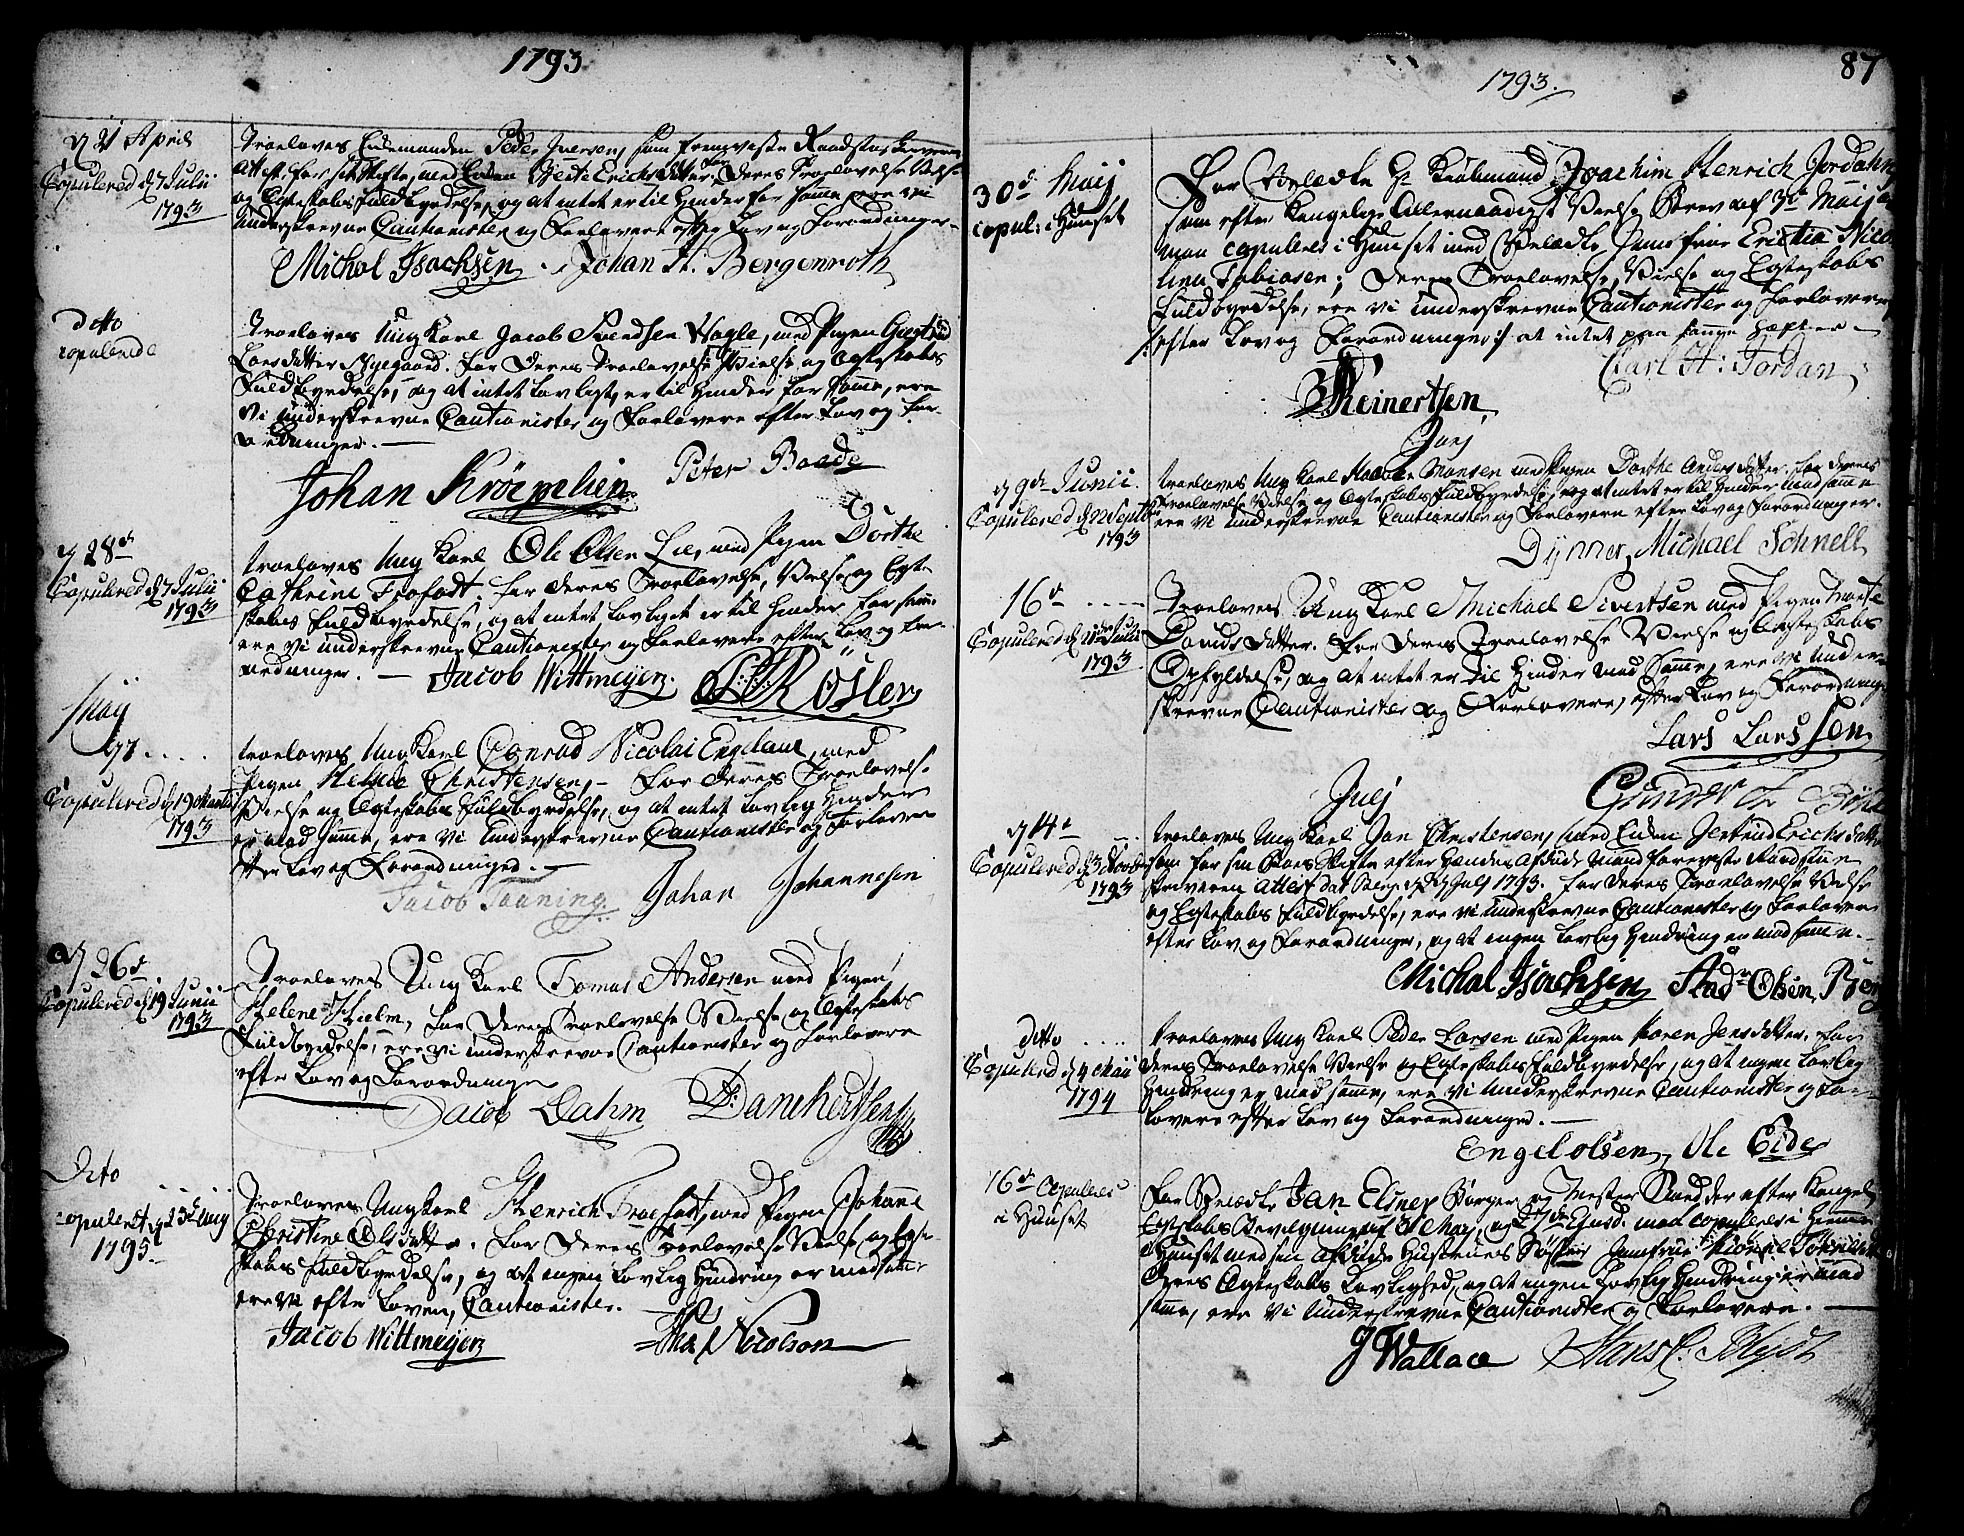 1793
d 21 April
Copulered d 7 Julii
1793
Troeloves Enkemanden Peder Iversen, som fremviste Raadstueskriverens
Attest for sit Skifte, med Enken Berte Erichsdatter, for Deres Troelovelse Vielse
og Egteskabs Fuldbyrdelse, og at intet er til Hinder for samme ere vi
underskrevne Cautionister og Forlovere efter Lov og Forordninger
Michel Isachsen Johan H. Bergenroth
ditto
copulerede
Troeloves Ung Karl Jacob Svendsen Nagle, med Pigen
Larsdatter Nyegaard. For Deres Troelovelse Vielse og Egteskabs
Fuldbyrdelse, og at intet Lovligt er til Hinder for samme, ere
Vi underskrevne Cautionister og Forlovere efter Lov og For-
ordninger.
Johan Kröepelien Peter Baade
d 28de
Copulered d 7 Julii
1793
troeloves Ung Karl Ole Olsen Lie, med Pigen Dorthe
Cathrine Frofodt. For deres Troelovelse, Vielse og Egte-
skabs Fuldbyrdelse, og at intet Lovligt er til Hinder for samme
ere vi underskrevne Cautionister og Forlovere efter Lov og For-
ordninger. Jacob Wittmeyer Rösler
Maij
17
Copulered d 19
1793
troeloves Ung Karl Conrad Nicolai Engelau, med
Pigen Christensen, For deres Troelovelse
Vielse og Egteskabs Fuldbyrdelse, og at intet Lovlig Hinder
er mod samme, ere vi underskrevne Cautionister og Forlovere
efter Lov og Forordninger.
Jacob Johan Johannesen
d 26de
Copulered d 19 Junii
1793
Troeloves Ung Karl Tomas Andersen med Pigen
Helene Hielm, for Deres Troelovelse Vielse og Egteskabs
Fuldbyrdelse, ere vi underskrevne Cautionister og Forlovere
efter Lov og Forordninger
Jacob Dahm
Dito
copuleret d 13de
1795
Troeloves Ung Karl Henrich med Pigen Johanne
Christine Olsdatter. For Deres Troelovelse Vielse og Egte-
skabs Fuldbyrdelse, og at ingen Lovlig Hindring er mod samme
ere vi efter Loven, Cautionister.
Jacob Wittmeyer Nicolson
87
1793.
30de Maij
copul: i Huuset
For Velædle Hr Kiøbmand Joachim Henrich Jordahn
som efter Kongelige Allernaadigst Vielse Brev af 3de Maij
maa copuleres i Huuset med Velædle Jomfrue Nico-
lina Tobiasen; Deres Troelovelse, Vielse og Egteskabs
Fuldbyrdelse, ere vi underskrevne Cautionister og Forlovere
efter Lov og Forordninger at intet paa samme hæfter
Carl H: Jordan
Reinertsen
Junj
d 9de Junii
Copulered d 12 Septb
1793
troeloves Ung Karl Monsen med Pigen Dorthe Andersdatter. For deres
Troelovelse Vielse og Egteskabs Fuldbyrdelse, og at intet er til Hinder mod samme
ere vi underskrevne Cautionister og Forlovere efter Lov og Forordninger.
Michael Schnell
16de
Copulered d 21de Julii
1793
Troeloves Ung Karl Michael Sivertsen med Pigen
Davidsdatter. For Deres Troelovelse Vielse og Egteskabs
Opfyldelse, og at intet er til Hinder mod samme, ere vi under-
skrevne Cautionister og Forlovere, efter Lov og Forordninger
Lars Larssen
Julj
d 14de
Copulered d 3 Octob
1793
troeloves Ung Karl Jan Christensen, med Enken Jertrud Erichsdatter
som for sin Boes Skifte efter Hendes Afdøde Mand foreviste Raadstue
skriveren Attest dat. Berg. d Julj 1793. For deres Troelovelse Vielse
og Egteskabs Fuldbyrdelse, ere vi underskrevne Cautionister og Forlovere
efter Lov og Forordninger, og at ingen Lovlig Hindring er mod samme.
Michal Isachsen Olsen
ditto
Copulered d 4 Maii
1794
troeloves Ung Karl Peder Larsen med Pigen Karen Jensdatter. For
deres Troelovelse Vielse og Egteskabs Fuldbyrdelse, og at ingen Lovlig
Hindring er mod samme, ere vi underskrevne Cautionister og For-
lovere efter Lov og Forordninger.
Engel olsen, Ole Eide
16de Copuleres
i Huuset
For Velædle Jan Elmer Borger og Mester der efter Kongel.
Egteskabs Bevilgning af Maj, og Ejusd. maa copuleres i Hiemme
Huuset med sin Afdøde Hustrues Søster Jomfrue
Deres Egteskabs Lovlighed, og at ingen Lovlig Hindring er mod
samme, ere vi underskrevne Cautionister og Forlovere.
J Wallace Hans C. Blijdt